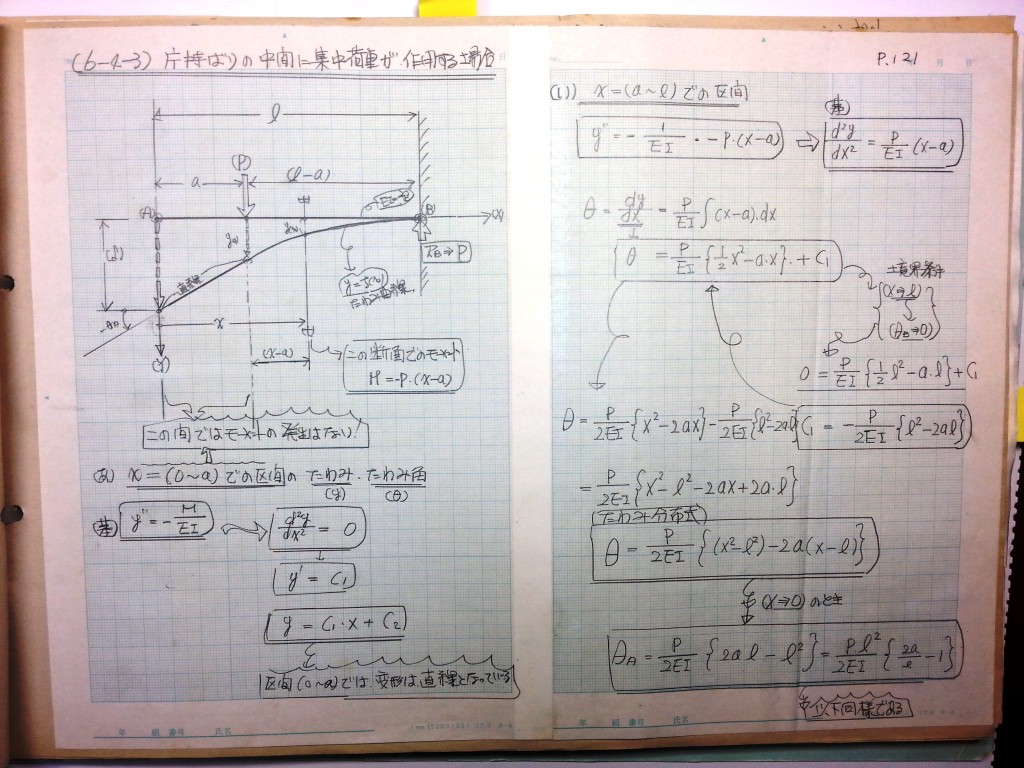 (6-4-3) 片持ばりの中間に集中荷重が作用する場合
l
(P)
a
(l-a)
(A)
(B)
(x)
(δ)
直線
y=f(x)
たわみ曲線
RB⇒P
-θA
x
(x-a)
(Y)
この断面でのモーメント
M=-P・(x-a)
この間ではモーメントの発生はない!
(あ) x=(0~a)での区間の たわみ・たわみ角
(y) (θ)
(基) y''=-M/EI
d²y/dx² = 0
y' = C₁
y = C₁・x + C₂
区間(0~a)では、変形は、直線となっている
年 組 番号 氏名
P.121
月 日
(い) x=(a~l)での区間
y'' = - 1/EI ・ -P・(x-a)
⇒
(基)
d²y/dx² = P/EI (x-a)
θ = dy/dx = P/EI ∫(x-a)・dx
θ = P/EI {1/2 x² - a・x}・ + C₁
境界条件
(x⇒l)
(θB⇒0)
0 = P/EI {1/2 l² - a・l} + C₁
θ = P/2EI {x² - 2ax} - P/2EI {l² - 2al}
C₁ = - P/2EI {l² - 2al}
= P/2EI {x² - l² - 2ax + 2a・l}
(たわみ分布式)
θ = P/2EI {(x² - l²) - 2a(x - l)}
(x⇒0)のとき
θA = P/2EI {2al - l²} = Pl²/2EI {2a/l - 1}
以下同様である
年 組 番号 氏名